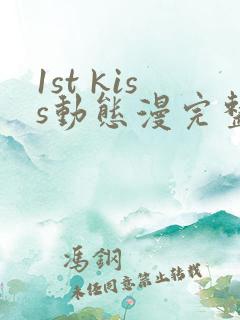 1st kis
s動態漫完整
馮鋼
未任同意禁止轉載